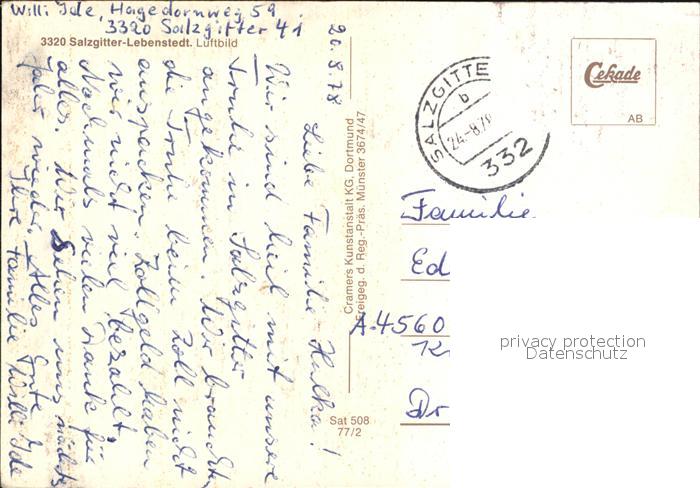 Willi Ide, Hagedornweg 59
3320 Salzgitter 41
3320 Salzgitter-Lebenstedt. Luftbild
20.8.78
Liebe Familie Hulka!
Wir sind heil mit unsere
Truhe in Salzgitter
angekommen. Wir brauchten
die Truhe beim Zoll nicht
auspacken. Zollgeld haben
wir nicht viel bezahlt.
Nochmals vielen Dank für
alles. Wir sehen uns nächstes
Jahr wieder. Alles Gute
Ihre Familie Willi Ide
Cramers Kunstanstalt KG, Dortmund
Freigeg. d. Reg.-Präs. Münster 3674/47
Sat 508
77/2
SALZGITTE
b
24.-8.78
332
Cekade
AB
Familie
Ed
A-4560
Dr
privacy protection
Datenschutz